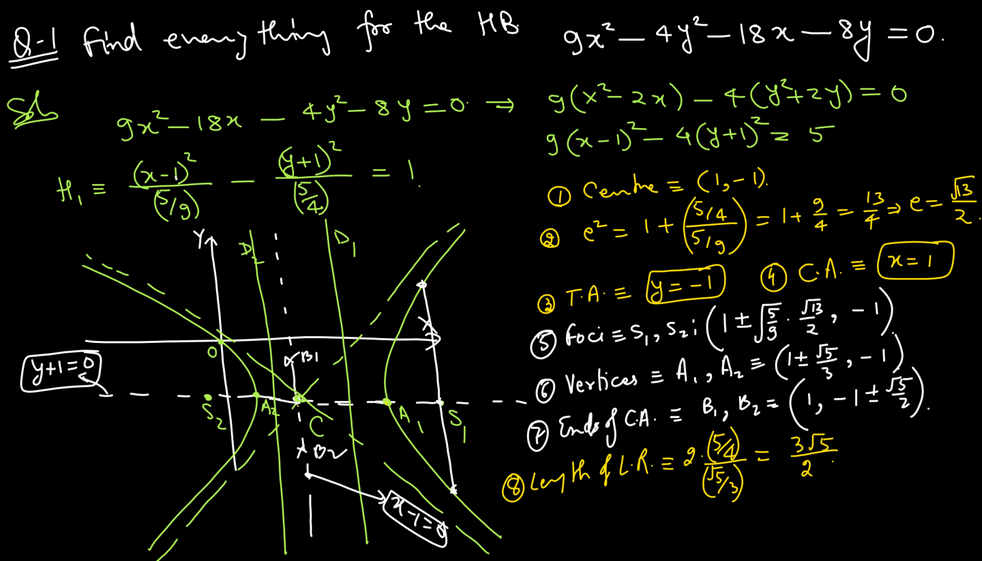 Q-1 Find everything for the HB 9x² − 4y² − 18x − 8y = 0.
Soln 9x² − 18x − 4y² − 8y = 0 → 9(x² − 2x) − 4(y² + 2y) = 0
9(x − 1)² − 4(y + 1)² = 5
H₁ ≡ (x−1)²/(5/9) − (y+1)²/(5/4) = 1.
① Centre ≡ (1, −1).
② e² = 1 + (5/4 / 5/9) = 1 + 9/4 = 13/4 ⇒ e = √13/2
③ T.A. ≡ y = −1 ④ C.A. ≡ x = 1
⑤ foci ≡ S₁, S₂ : (1 ± √5/9 · √13/2, −1)
⑥ Vertices ≡ A₁, A₂ ≡ (1 ± √5/3, −1)
⑦ Ends of C.A. ≡ B₁, B₂ = (1, −1 ± √5/2).
⑧ Length of L.R. ≡ 2·(5/4)/(√5/3) = 3√5/2.
Y
D₂
D₁
X
O
B₁
y+1=0
S₂
A₂
C
A₁
S₁
B₂
x−1=0